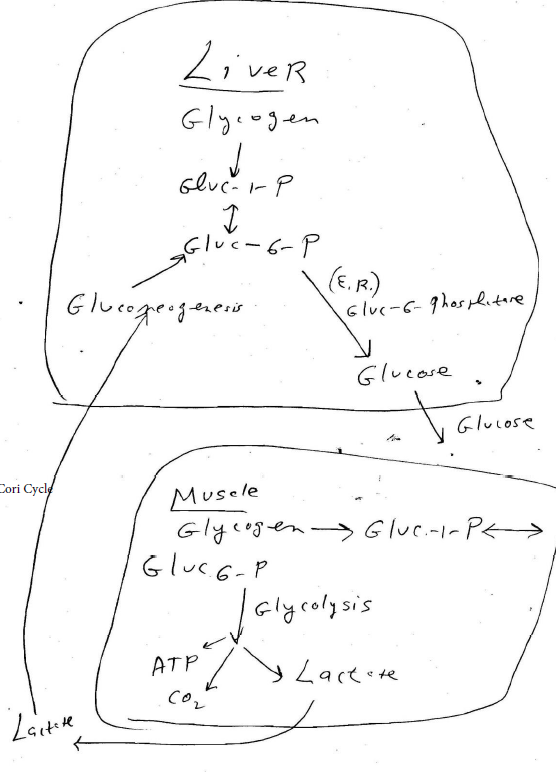 Liver
Glycogen
Gluc-1-P
Gluc-6-P
(E.R.)
Gluc-6-phosphatase
Gluconeogenesis
Glucose
Glucose
Cori Cycle
Muscle
Glycogen → Gluc.-1-P ↔
Gluc 6-P
Glycolysis
ATP
CO2
Lactate
Lactate